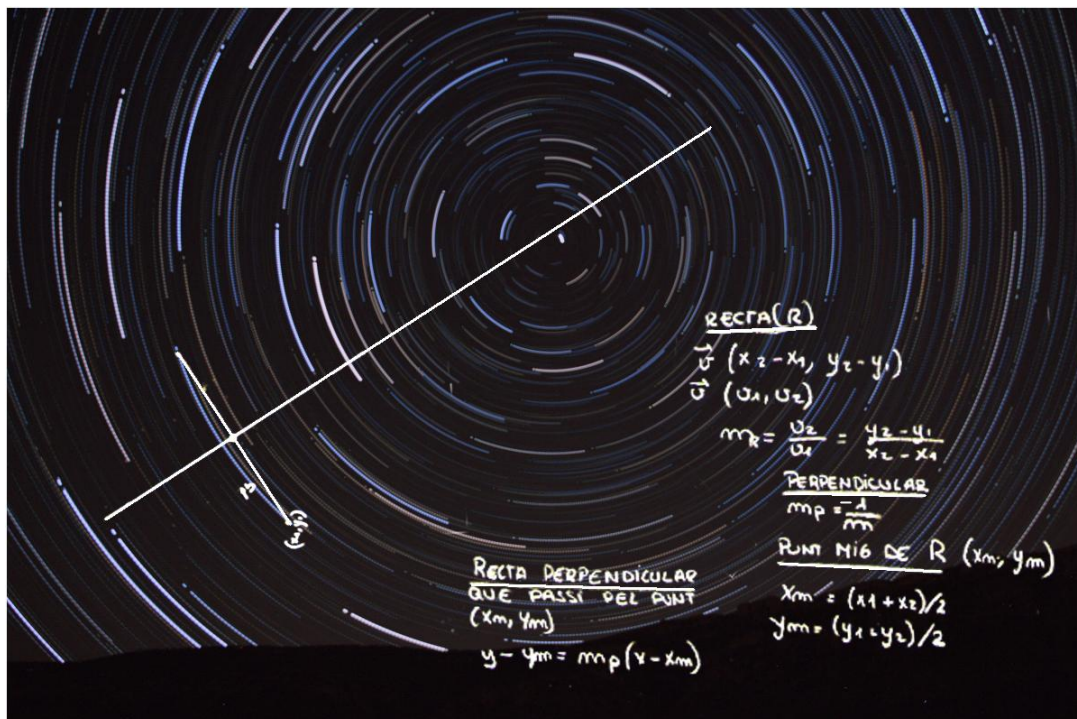 RECTA(R)
v⃗ (x2-x1, y2-y1)
v⃗ (v1, v2)
mR = v2/v1 = y2-y1/x2-x1
PERPENDICULAR
mp = -1/m
PUNT MIG DE R (xm, ym)
xm = (x1+x2)/2
ym = (y1-y2)/2
RECTA PERPENDICULAR
QUE PASSI PEL PUNT
(xm, ym)
y-ym = mp(x-xm)
(x1,y1)